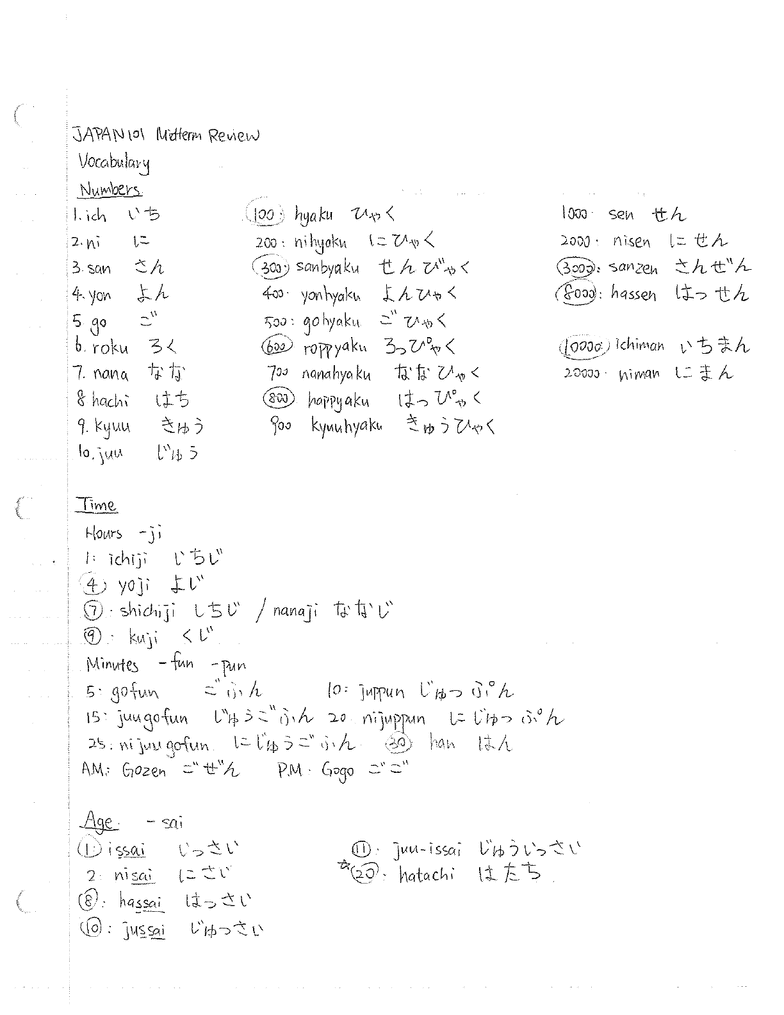 JAPAN101 Midterm Review
Vocabulary
Numbers
1. ich いち
2. ni に
3. san さん
4. yon よん
5 go ご
6. roku ろく
7. nana なな
8 hachi はち
9. kyuu きゅう
10. juu じゅう
100: hyaku ひゃく
200: nihyoku にひゃく
300: sanbyaku せんびゃく
400: yonhyaku よんひゃく
500: gohyaku ごひゃく
600: roppyaku ろっぴゃく
700 nanahyaku ななひゃく
800: happyaku はっぴゃく
900 kyuuhyaku きゅうひゃく
1000. sen せん
2000. nisen にせん
3000: sanzen さんぜん
8000: hassen はっせん
10000 ichiman いちまん
20000. niman にまん
Time
Hours -ji
1: ichiji じちじ
4: yoji よじ
7. shichiji しちじ / nanaji ななじ
9. kuji くじ
Minutes -fun -pun
5. gofun ごふん 10: juppun じゅっぷん
15: juugofun じゅうごふん 20. nijuppun にじゅっぷん
25: nijuugofun にじゅうごふん 30 han はん
A.M.: Gozen ごぜん P.M. Gogo ごご
Age. -sai
1: issai じっさい
2. nisai にさい
8: hassai はっさい
10: jussai じゅっさい
11. juu-issai じゅういっさい
☆20: hatachi はたち